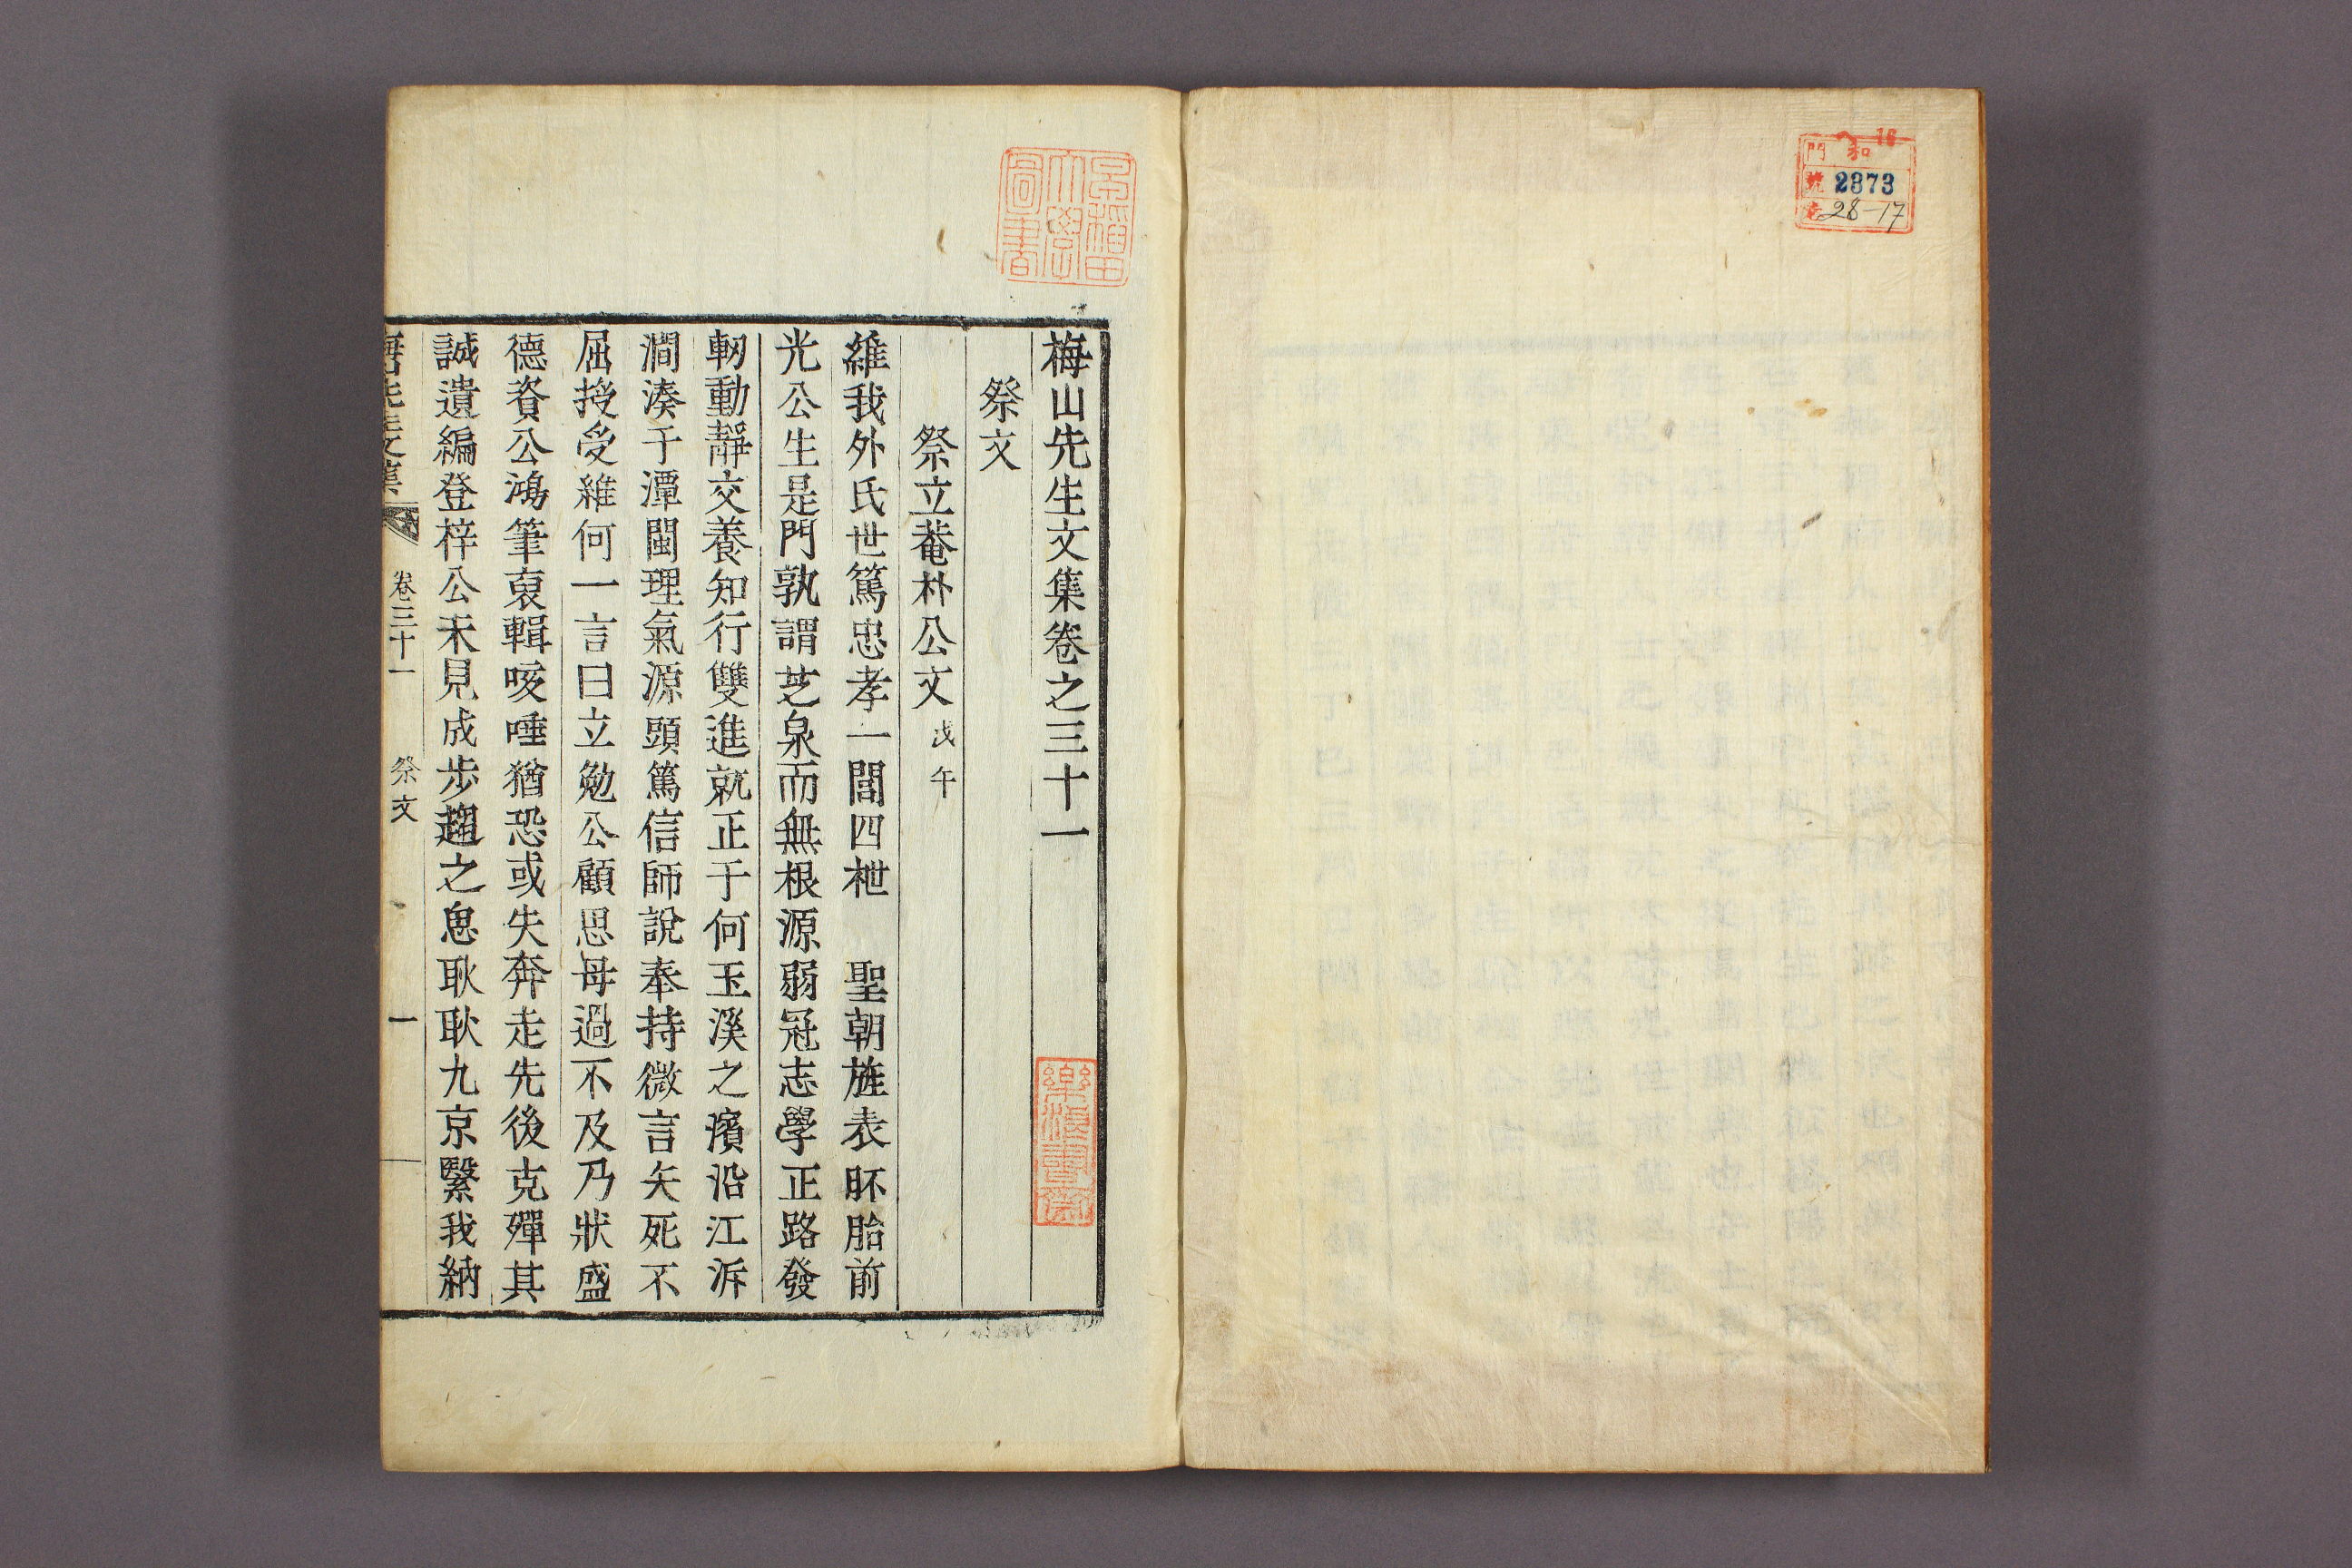 16
和
門
號 2373
卷 28-17
早稲田
大學
圖書
梅山先生文集卷之三十一
樂浪書齋
祭文
祭立菴朴公文 戊午
維我外氏世篤忠孝一閭四袣 聖朝旌表胚胎前
光公生是門孰謂芝泉而無根源弱冠志學正路發
軔動靜交養知行雙進就正于何玉溪之濱沿江泝
澗湊于潭閩理氣源頭篤信師說奉持微言矢死不
屈授受維何一言曰立勉公顧思毋過不及乃狀盛
德資公鴻筆裒輯咳唾猶恐或失奔走先後克殫其
誠遺編登梓公未見成步趨之思耿耿九京繄我納
梅山先生文集
卷三十一
祭文
一